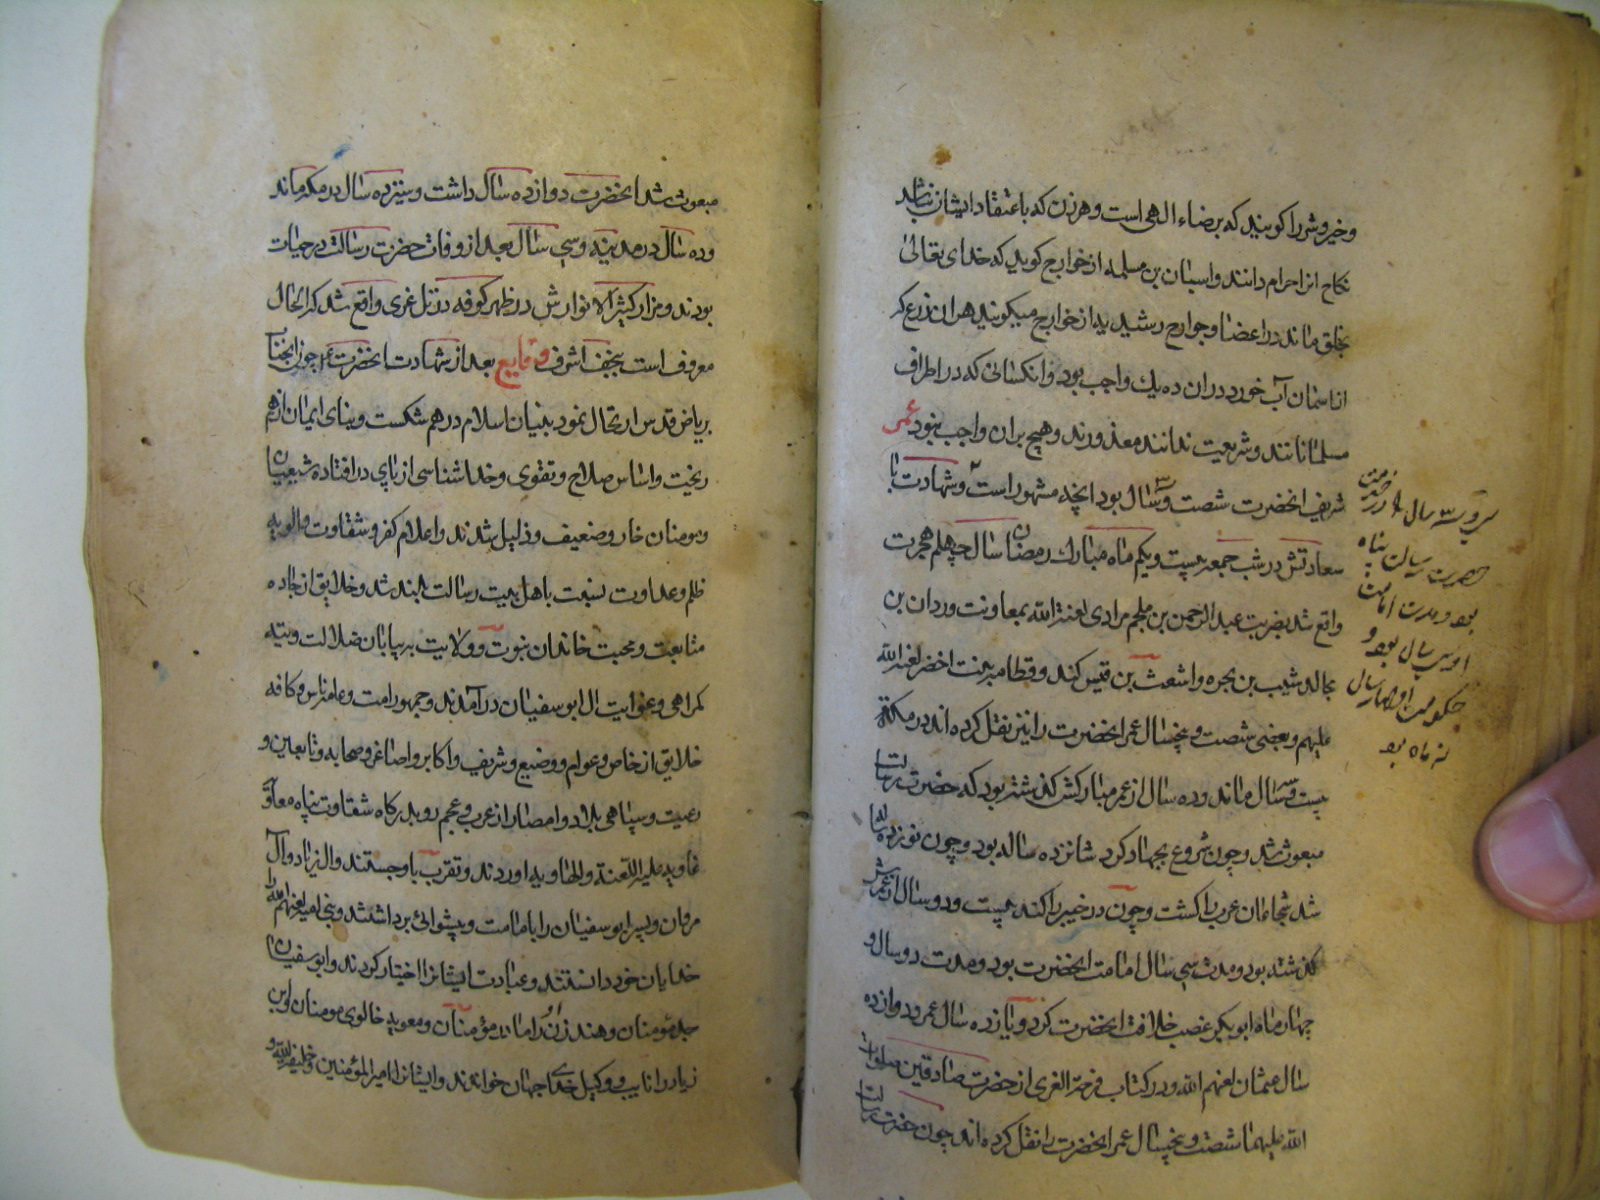 وخیر وشر را کویند که برضاء الهی است وهر زن که باعتقاد ایشان نباشد
نکاح انرا حرام دانند واسیان بن مسلمه از خوارج کوید که خدای تعالی
بخلق ماند در اعضا وجوارح رشیدیه از خوارج میکویند هر ان زرع کر
اناسمان آب خورد در ان ده یك واجب بود وانکسانی که در اطراف
مسلمانانند وشریعت ندانند معذورند وهیچ بران واجب نبود عمر
شریف انحضرت شصت وسه سال بود انچه مشهور است وشهادت با
سعادتش در شب جمعه بیست ویکم ماه مبارك رمضان سال چهلم هجرت
واقع شد بضربت عبد الرحمن بن ملجم مرادی لعنة الله بمعاونت وردان بن
مجالد شبیب بن بجره واشعث بن قیس کند وقطامه بنت اخضر لعنه الله
علیهم وبعضی شصت وپنجسال عمر انحضرت را نیز نقل کرده اند در مکه
بیست وسه سال ماند وده سال از عمر مبارکش کذشته بود که حضرت رسالت
مبعوث شد وچون شروع بجهاد کرد شانزده ساله بود وچون نوزده ساله
شد شجاعان عرب را کشت وچون در خیبر را کند بیست ودو سال از عمرش
کذشته بود ومدت سی سال امامت انحضرت بود ومدت دو سال و
چهار ماه ابوبکر غصب خلافت انحضرت کرد ویازده سال عمر ودوازده
سال عثمان لعنهم الله ودر کتاب فرحة الغری از حضرت صادقین صلوات
الله علیهما شصت وپنجسال عمر انحضرت را نقل کرده اند چون حضرت رسالت
سی وسه سال در خدمت
حضرت رسالت پناه
بود ومدت امامت
او سی سال بود و
حکومت او چهار سال
نه ماه بود
مبعوث شد انحضرت دوازده سال داشت وسیزده سال در مکه ماند
وده سال در مدینه وسی سال بعد از وفات حضرت رسالت در حیات
بودند ومزار کثیر الانوارش در ظهر کوفه در تل غری واقع شد که الحال
معروف است بنجف اشرف وقایع بعد از شهادت انحضرت چون انجناب
بریاض قدس ارتحال نمود بنیان اسلام درهم شکست وبنای ایمان از هم
ریخت واساس صلاح وتقوی وخدا شناسی از پای در افتاده شیعیان
ومومنان خار وضعیف وذلیل شدند واعلام کفر وشقاوت والویه
ظلم وعداوت نسبت باهل بیت رسالت بلند شد وخلایق از جاده
متابعت ومحبت خاندان نبوت وولایت به بیابان ضلالت وتیه
کمراهی وغوایت ال ابو سفیان در آمدند وجمهور امت وعامه ناس وکافه
خلایق از خاص وعوام ووضیع وشریف واکابر واصاغر وصحابه وتابعین و
رعیت وسپاهی بلاد وامصار از عرب وعجم رو بدرکاه شقاوت پناه معاویه
غاویه علیه اللعنة والهاویه اوردند وتقرب باو جستند وال زیاد وآل
مروان وپسر ابو سفیان را بامامت وپیشوائی برداشتند وبنی امیه لعنهم الله را
خدایان خود دانستند وعبادت ایشانرا اختیار کردند وابو سفیان
جد مومنان وهند زن او را مادر مؤمنان ومعویه خالوی مومنان
زیاد را نایب ووکیل خدای جهان خواندند وایشانرا امیر المؤمنین وخلیفة الله و